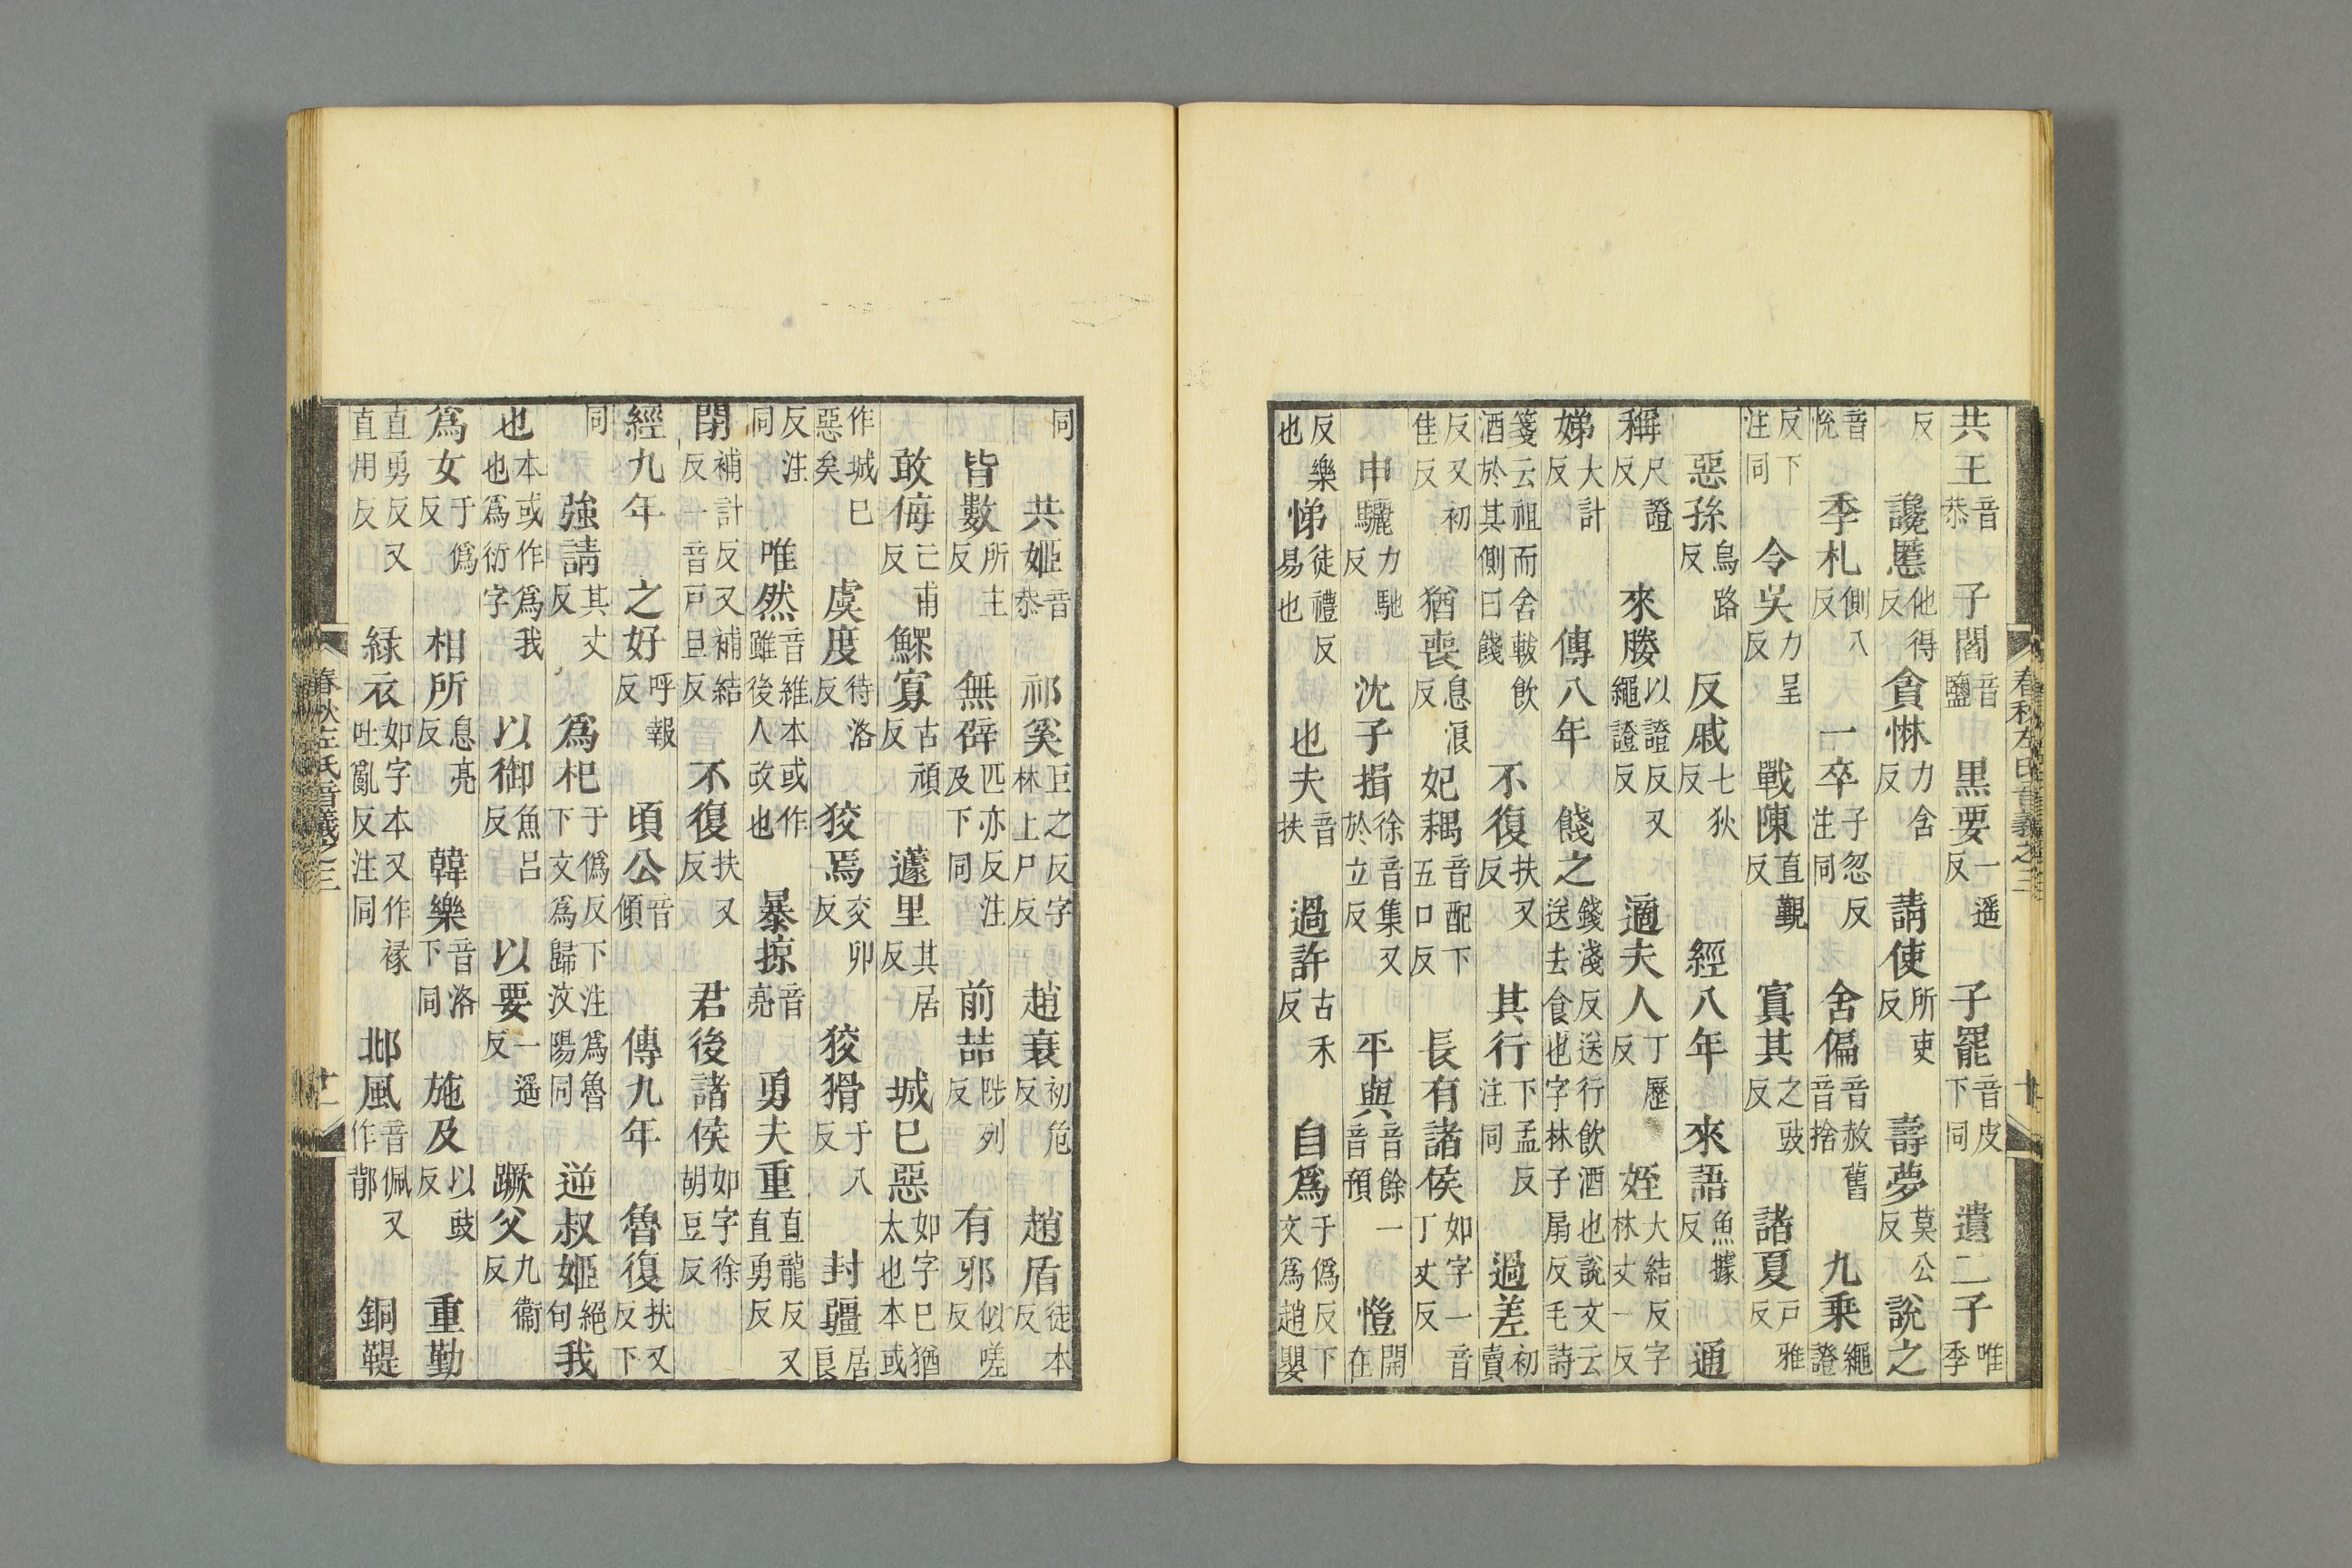 共王音恭子閻音鹽黒要一遥反子罷音皮下同遺二子唯季
反讒慝他得反貪惏力含反請使所吏反壽夢莫公反說之
音恱季札側八反一卒子忽反注同舍偏音赦舊音捨九乗繩證
反下注同令吳力呈反戰陳直覲反寘其之豉反諸夏戸雅反
惡孫烏路反反戚七狄反經八年來語魚據反通
稱尺證反來媵以證反又繩證反適夫人丁歷反姪大結反字林丈一反
娣大計反傳八年餞之錢淺反送行飲酒也說文云送去食也字林子扇反毛詩
箋云祖而舍軷飲酒於其側曰餞不復扶又反其行下孟反注同過差初賣
反又初佳反猶喪息浪反妃耦音配下五口反長有諸侯如字一音丁丈反
申驪力馳反沈子揖徐音集又於立反平與音餘一音預愷開在
反樂也悌徒禮反易也也夫音扶過許古禾反自爲于僞反下文爲趙嬰
春秋左氏音義之三 十
同共姬音恭祁奚巨之反字林上尸反趙衰初危反趙盾徒本反
皆數所主反無辟匹亦反注及下同前喆陟列反有邪似嗟反
敢侮亡甫反鰥寡古頑反蘧里其居反城巳惡如字巳猶太也本或
作城巳惡矣虞度待洛反狡焉交卯反狡猾于八反封疆居良
反注同唯然音維本或作雖後人改也暴掠音亮勇夫重直龍反又直勇反
閉補計反又補結反一音戸旦反不復扶又反君後諸侯如字徐胡豆反
經九年之好呼報反頃公音傾傳九年魯復扶又反下
同強請其丈反爲杞于僞反下注爲魯下文爲歸汶陽同逆叔姬絕句我
也本或作爲我也爲衍字以御魚呂反以要一遥反蹶父九衞反
爲女于僞反相所息亮反韓樂音洛下同施及以豉反重勤
直勇反又直用反緑衣如字本又作褖吐亂反注同邶風音佩又作鄁銅鞮
春秋左氏音義之三 十一